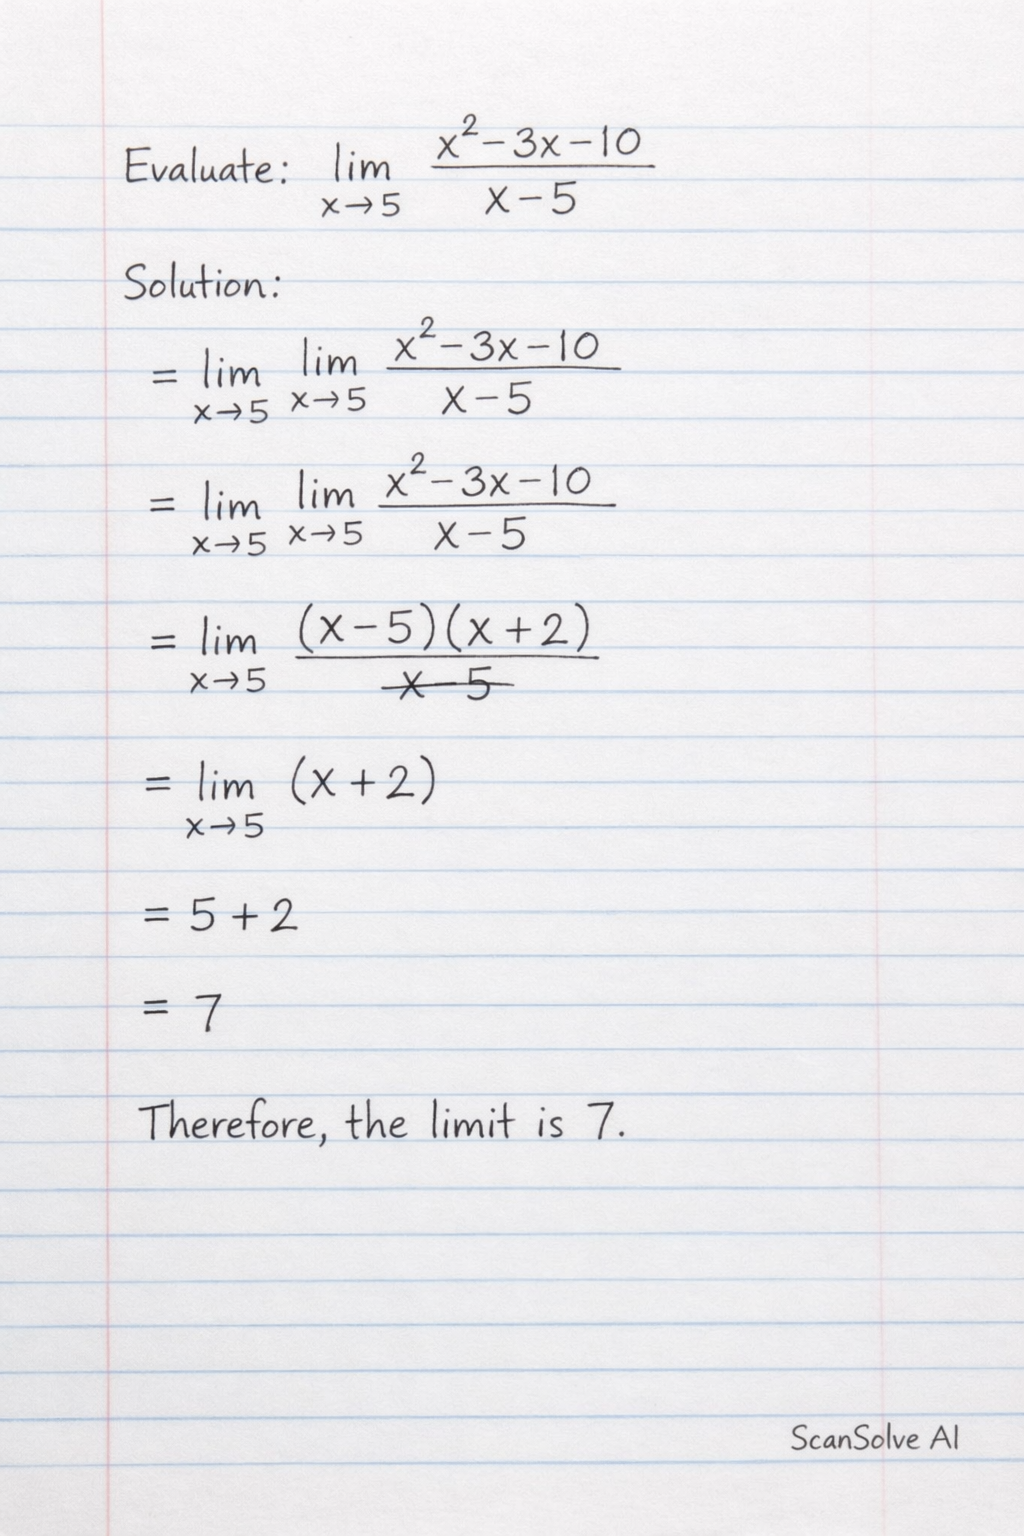 Evaluate: lim x→5 (x² − 3x − 10)/(x − 5)
Solution:
= lim x→5 lim x→5 (x² − 3x − 10)/(x − 5)
= lim x→5 lim x→5 (x² − 3x − 10)/(x − 5)
= lim x→5 (x − 5)(x + 2)/(x − 5)
= lim x→5 (x + 2)
= 5 + 2
= 7
Therefore, the limit is 7.
ScanSolve AI